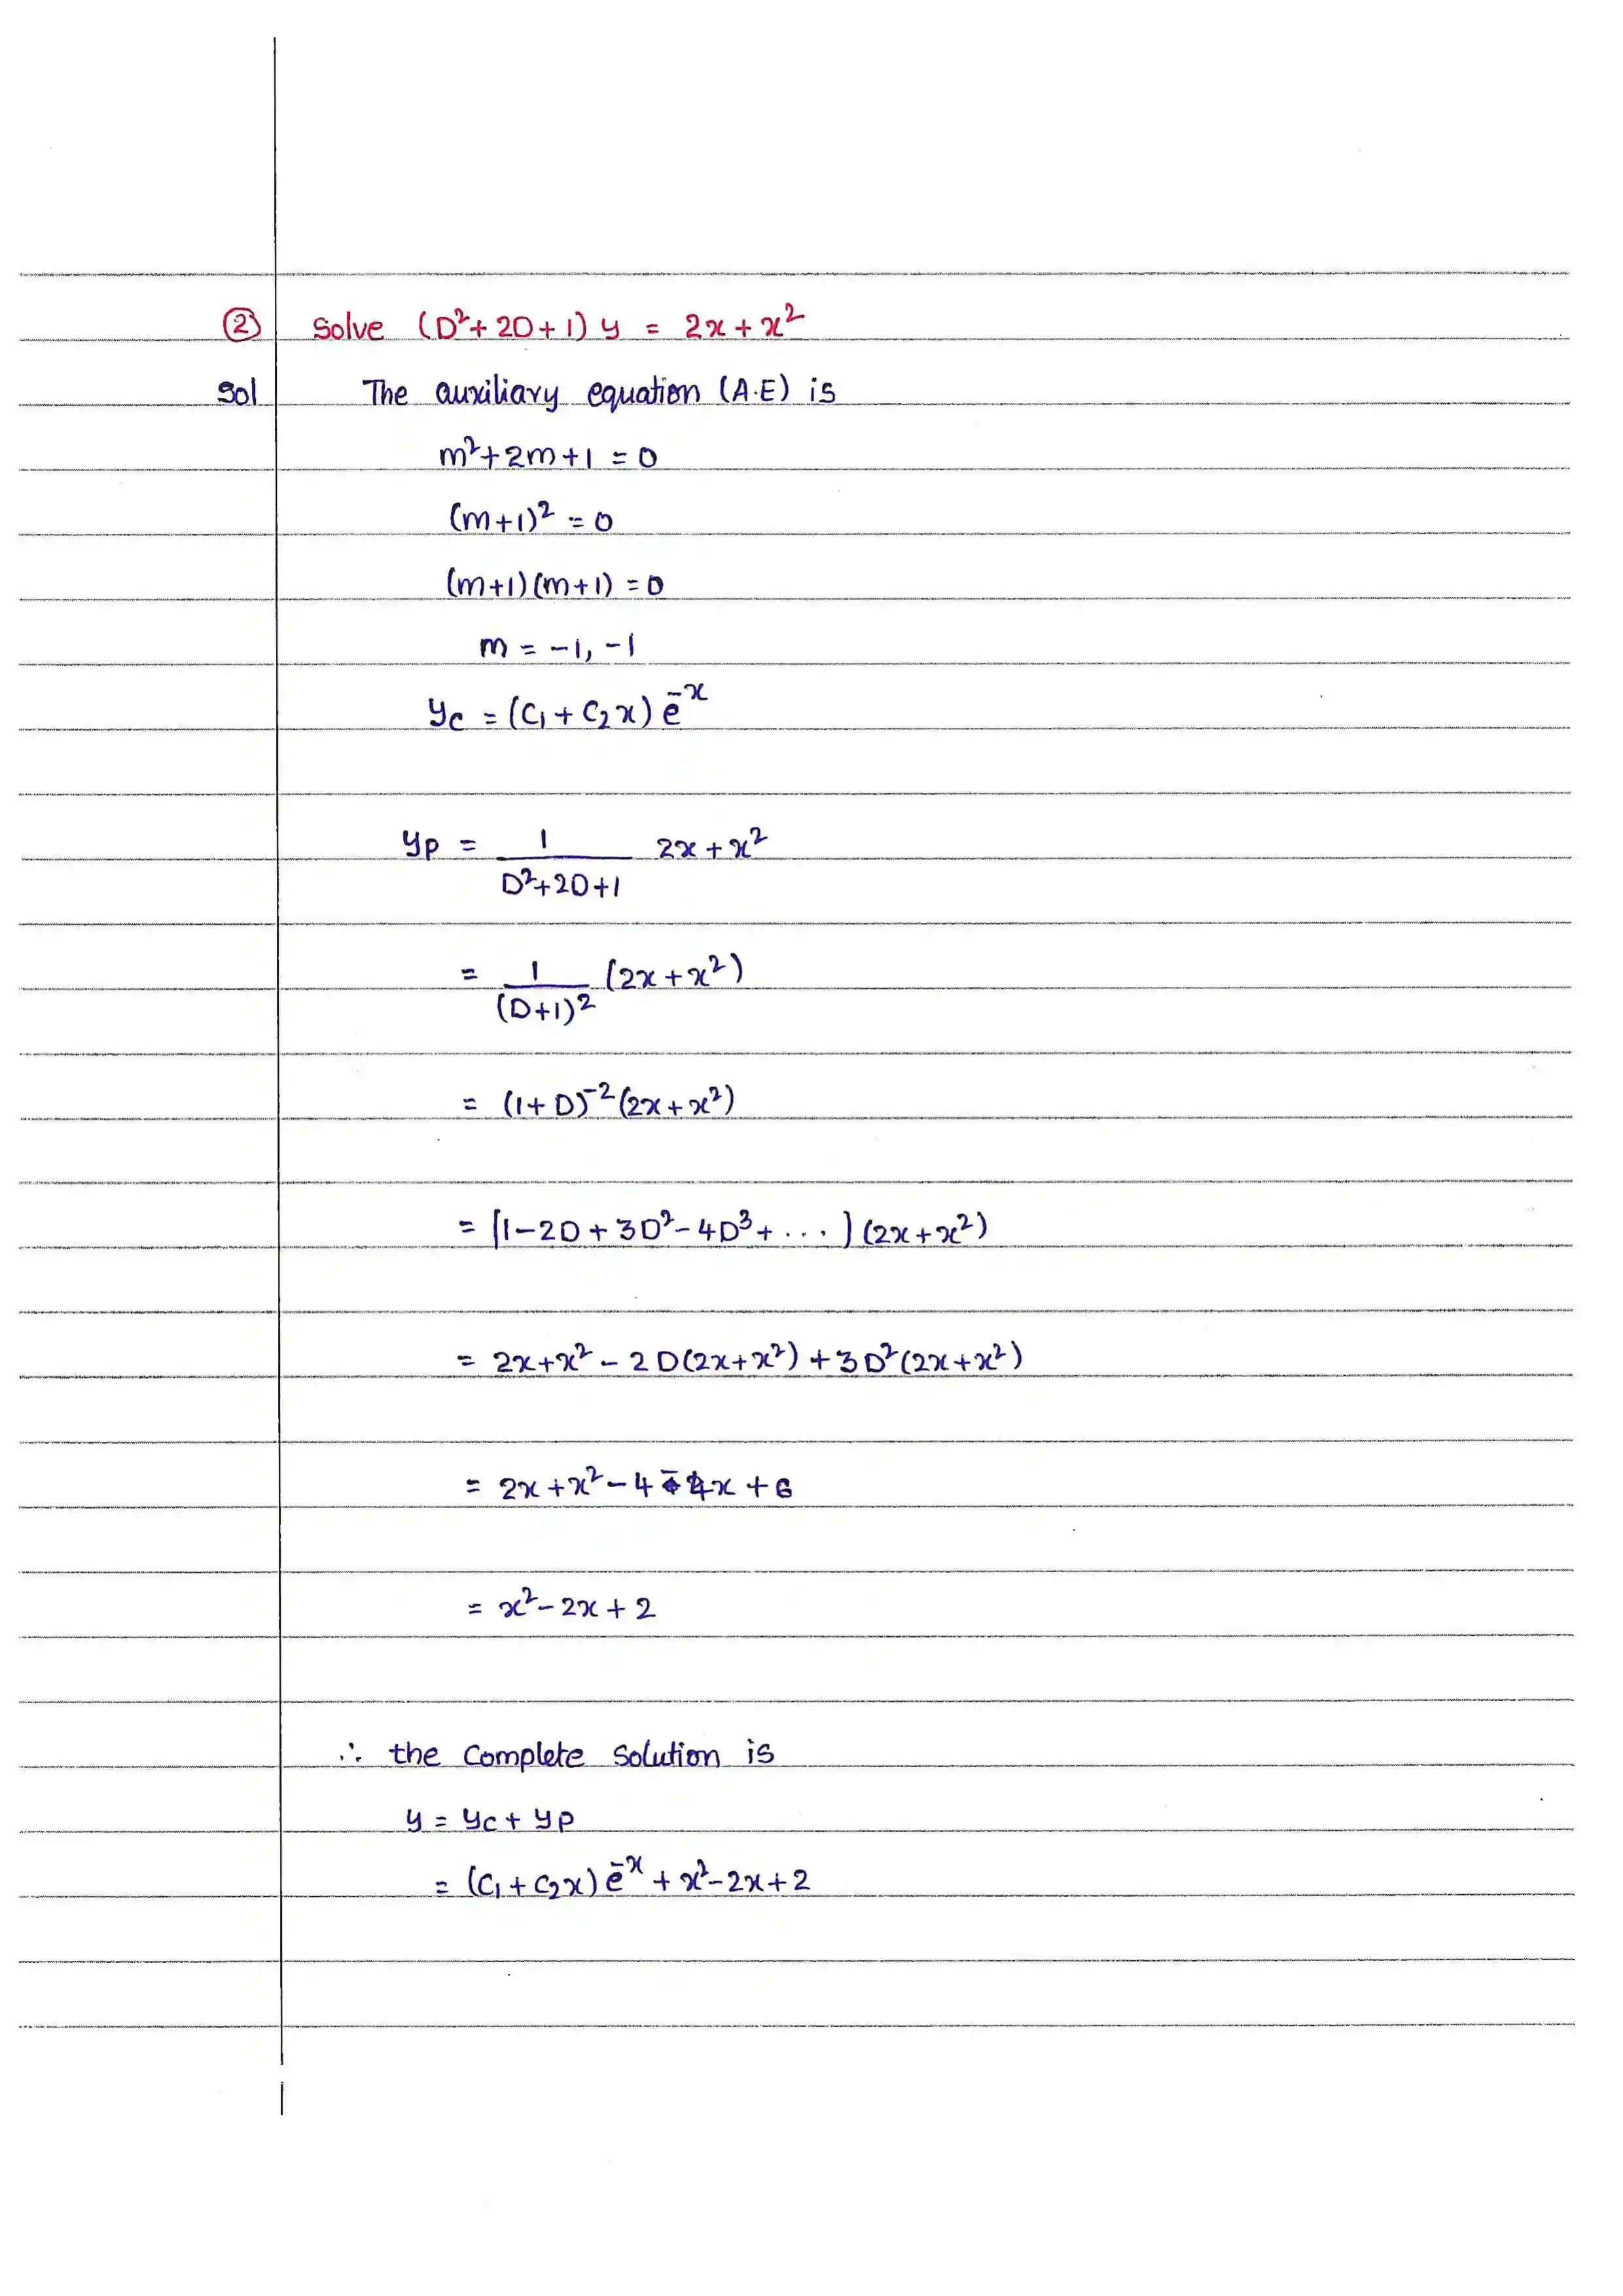 ② Solve (D²+2D+1) y = 2x+x²
Sol The auxiliary equation (A.E) is
m²+2m+1 = 0
(m+1)² = 0
(m+1)(m+1) = 0
m = -1, -1
y_c = (C₁ + C₂x) e^-x
y_p = 1/(D²+2D+1) 2x+x²
= 1/(D+1)² (2x+x²)
= (1+D)^-2 (2x+x²)
= [1-2D+3D²-4D³+...] (2x+x²)
= 2x+x² - 2D(2x+x²) + 3D²(2x+x²)
= 2x+x²-4-4x+6
= x²-2x+2
∴ the complete solution is
y = y_c + y_p
= (C₁+C₂x) e^-x + x²-2x+2